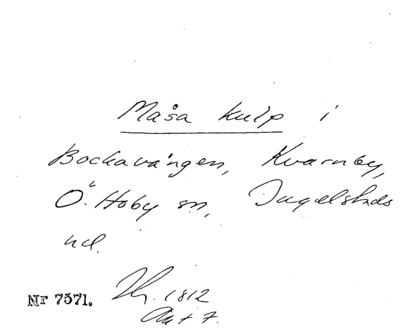 Måsa kulp i
Bockavången, Kvarnby,
Ö. Hoby sn, Ingelstads
hd.
Nr 7571. 1812
Akt 7.